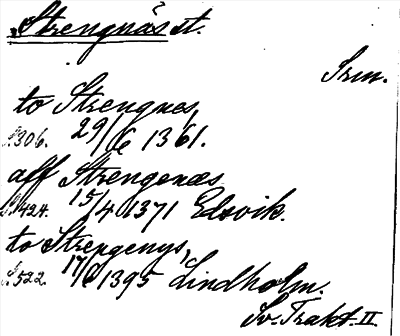 Strengnäs st.
Srm.
to Strengnes,
S.306. 29/6 1361.
aff Strengenæs
S.424. 15/4 1371 Elsvik.
to Strengenys,
S.522. 17/6 1395 Lindholm.
Sv. Trakt. II